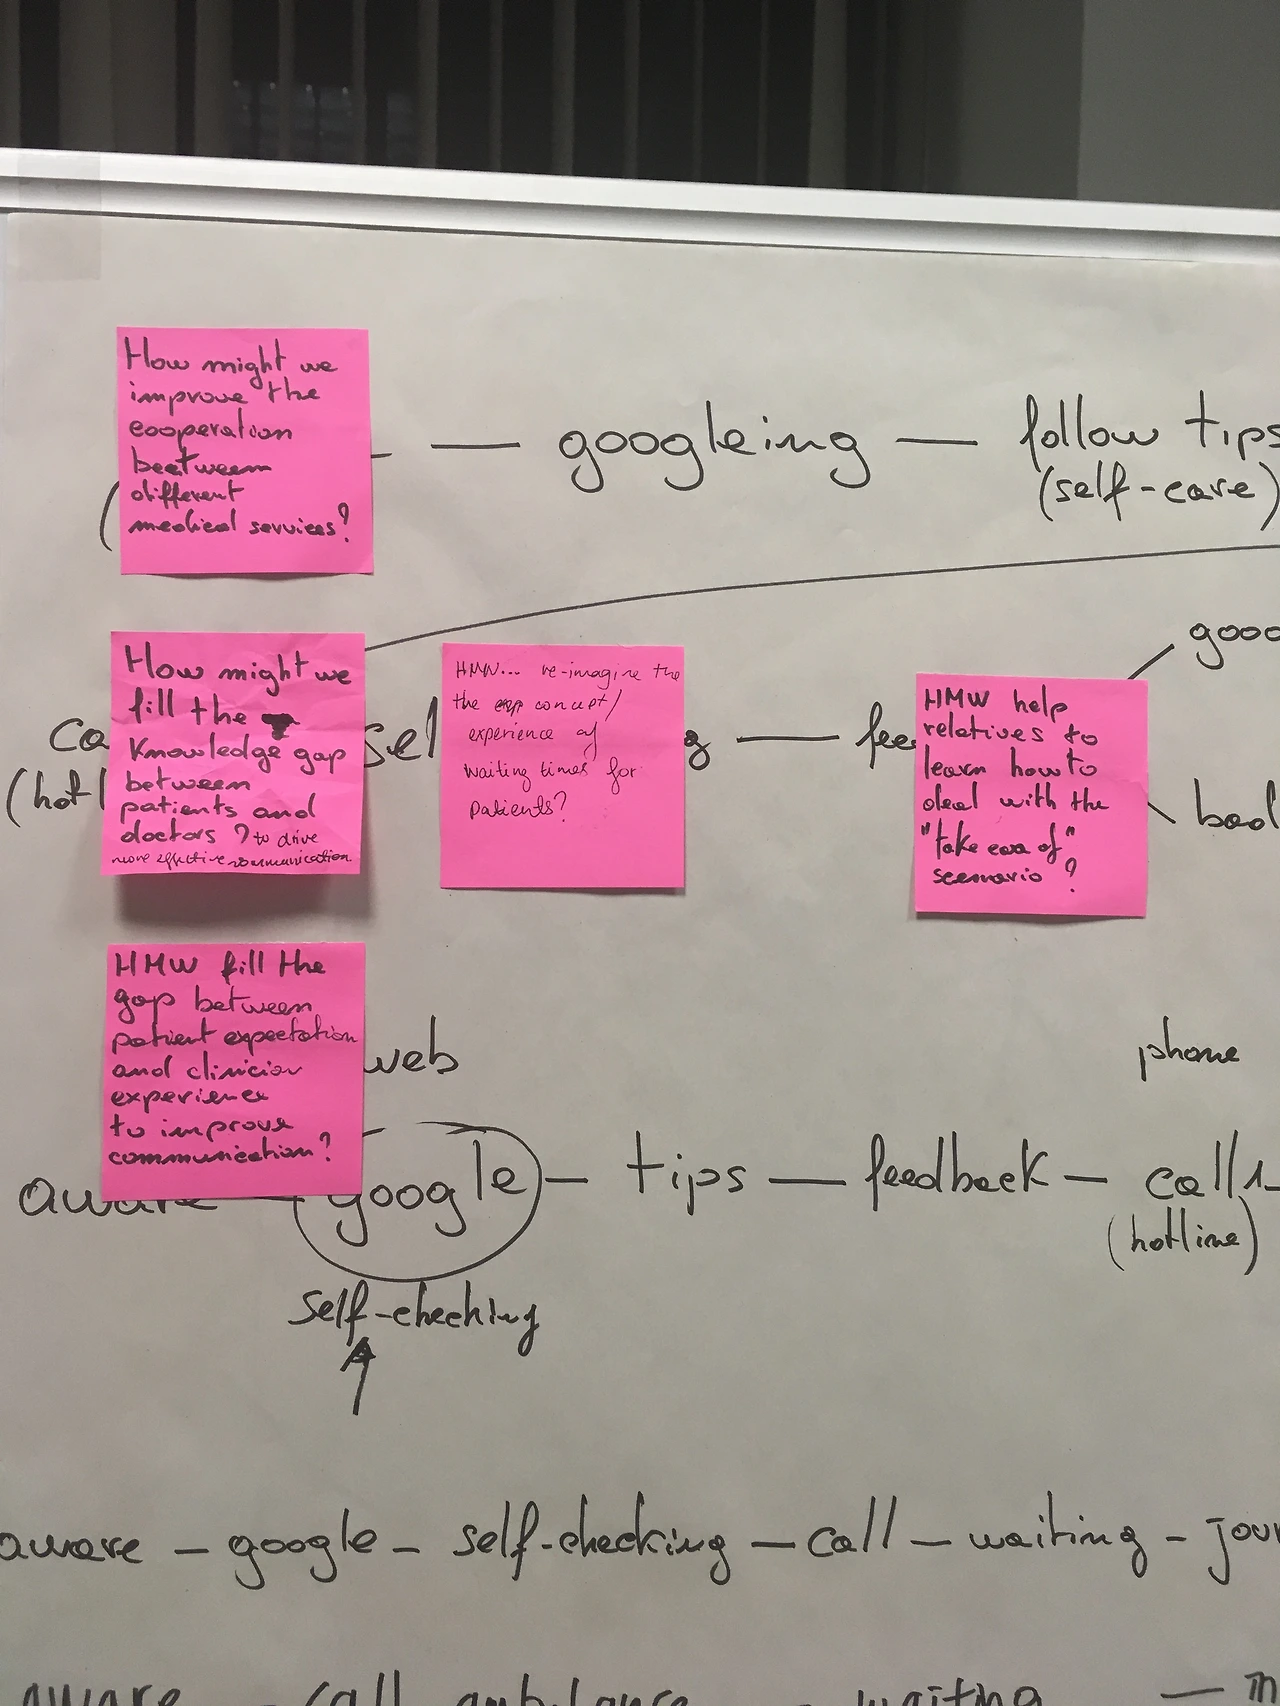 How might we
improve the
cooperation
beetween
different
medical services?
— googleing — follow tips
(self-care)
How might we
fill the
Knowledge gap
between
patients and
doctors? to drive
more effective communication
HMW... re-imagine the
the exp concept/
experience of
waiting times for
patients?
HMW help
relatives to
learn how to
deal with the
"take care of"
scenario?
HMW fill the
gap between
patient expectation
and clinician
experience
to improve
communication?
web
phone
aware — google — tips — feedback — call
(hotline)
self-checking
aware — google — self-checking — call — waiting -
aware - call ambulance - waiting —